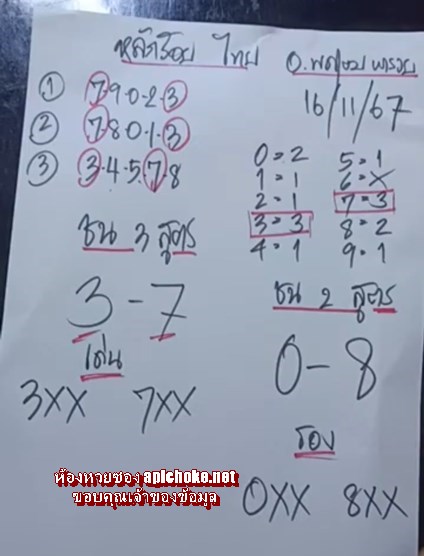 หลักร้อย ไทย อ.พฤษภ พารวย
16/11/67
① 7-9-0-2-3
② 7-8-0-1-3
③ 3-4-5-7-8
0=2 5=1
1=1 6=X
2=1 7=3
3=3 8=2
4=1 9=1
ชน 3 สูตร
3-7
เด่น
3XX 7XX
ชน 2 สูตร
0-8
รอง
0XX 8XX
ห้องหวยซอง apichoke.net
ขอบคุณเจ้าของข้อมูล